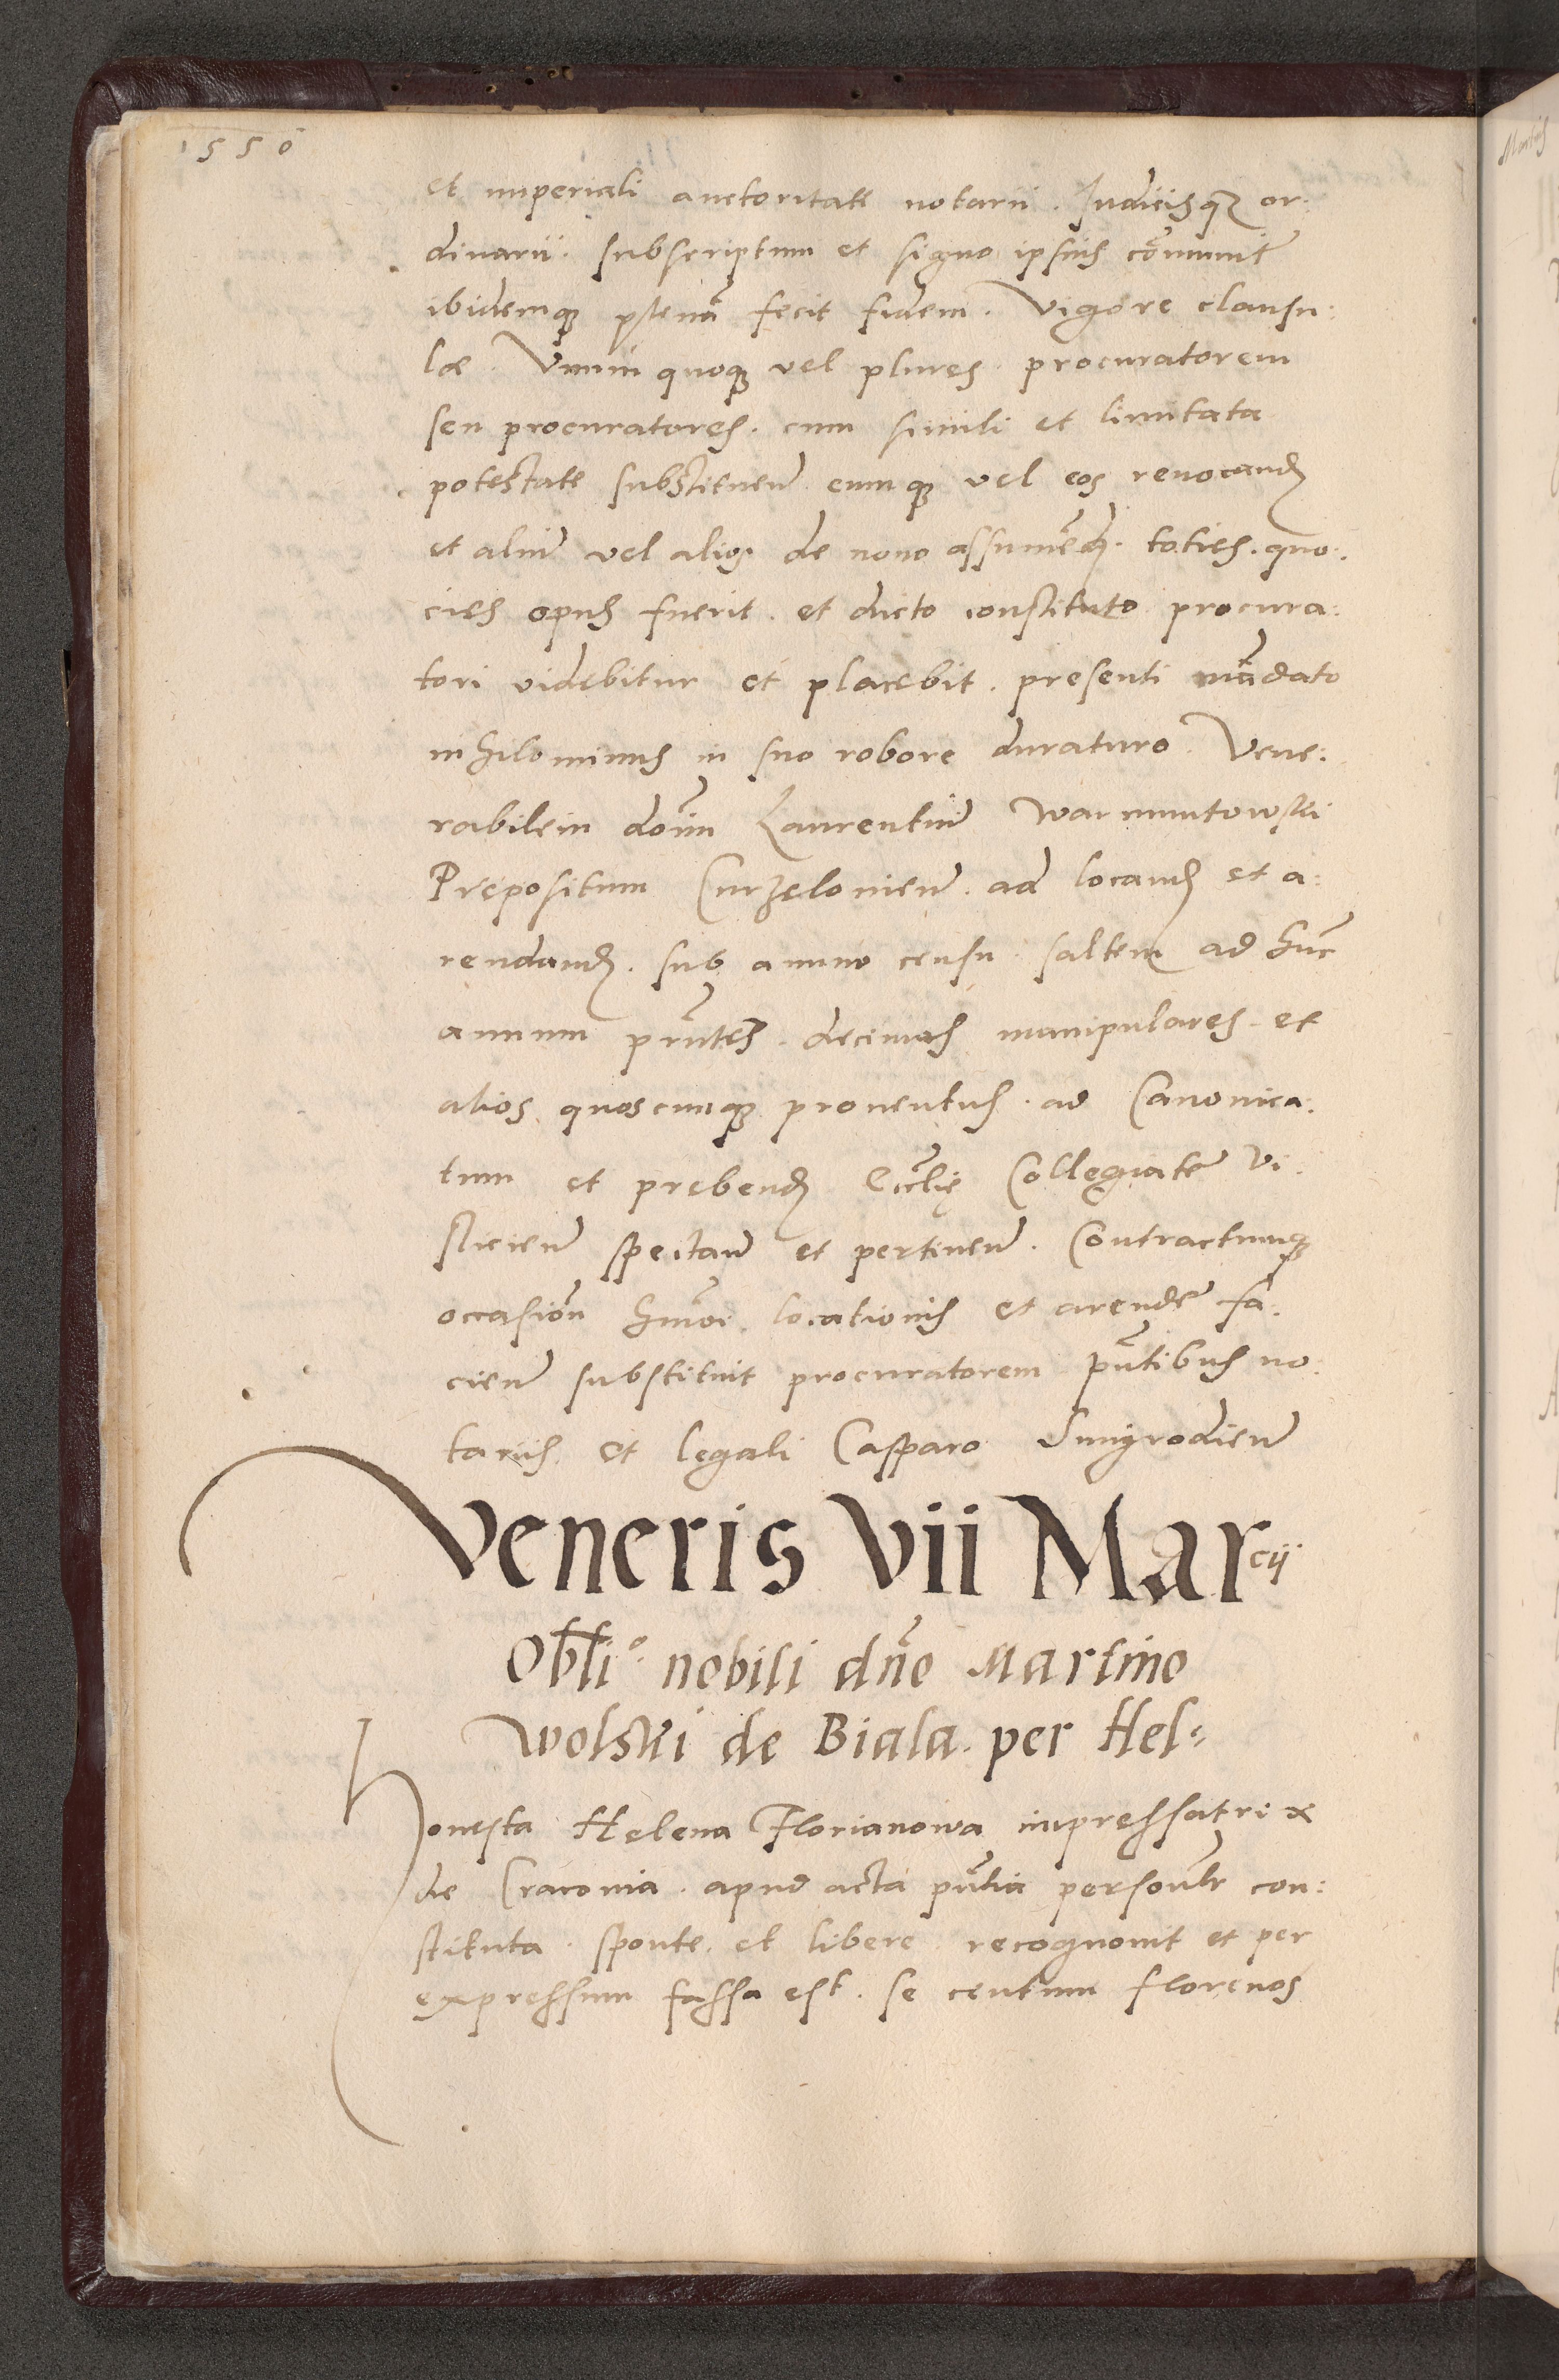 1550
et imperiali auctoritate notarii. Iudicisq3 or:
dinarii. subscriptum et signo ipsius cōmunit̃
ibidemq3 plenā fecit fidem. Vigore clausu:
lae. Unum quoq3 vel plures. procuratorem
seu procuratores. cum simili et limitata
potestate substituen̄ eumq3 vel eos reuocand̃
et aliū vel alios. de nouo assumēd̃. toties. quo:
cies opus fuerit. et dicto constituto procura:
tori videbitur et placebit. presenti mādato
nihilominus in suo robore duraturo. Vene:
rabilem dom̄ Laurentiū Warmuntowski
Prepositum Curzelouien̄. ad locand̃ et a:
rendand̃. sub annuo censu. saltem ad hūc
annum pn̄tes. decimas manipulares. et
alios quoscumq3 prouentus. ad Canonica:
tum et prebend̃ Eccl̄ię Collegiate Vi:
slicien̄ spectan̄ et pertinen̄. Contractumq3
occasiōn hm̄oi. locationis et arende fa:
cien̄ substituit procuratorem pn̄tibus no:
tariis et legali Casparo Smigrodien̄
Veneris Vii Marcij
Obl̄i° nobili dn̄o Martino
Wolski de Biala. per Hel:
Honesta Helena Florianowa impressatrix
de Cracouia. apud acta pn̄tia personl̄r con:
stituta. sponte. et libere. recognouit et per
expressum fassa est. se centum florenos